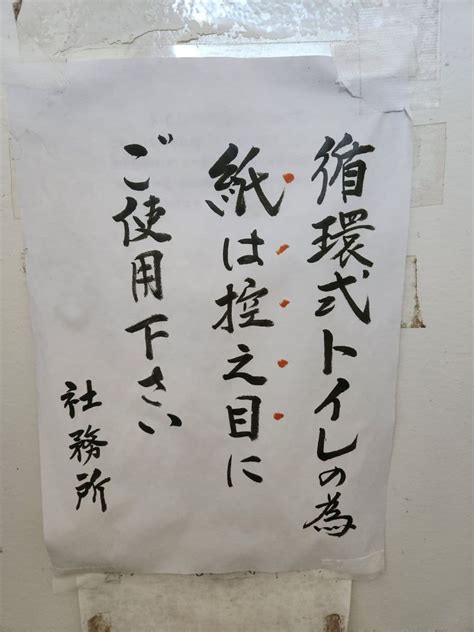 循環式トイレの為
紙は控え目に
ご使用下さい
社務所